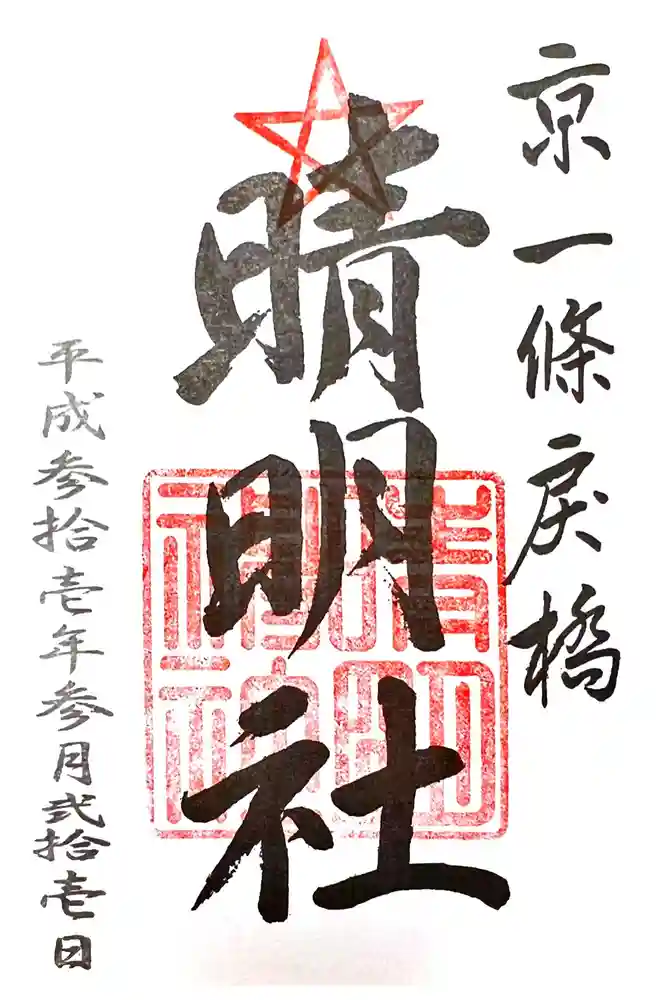 京一條戻橋
晴明社
平成参拾壱年参月弐拾壱日